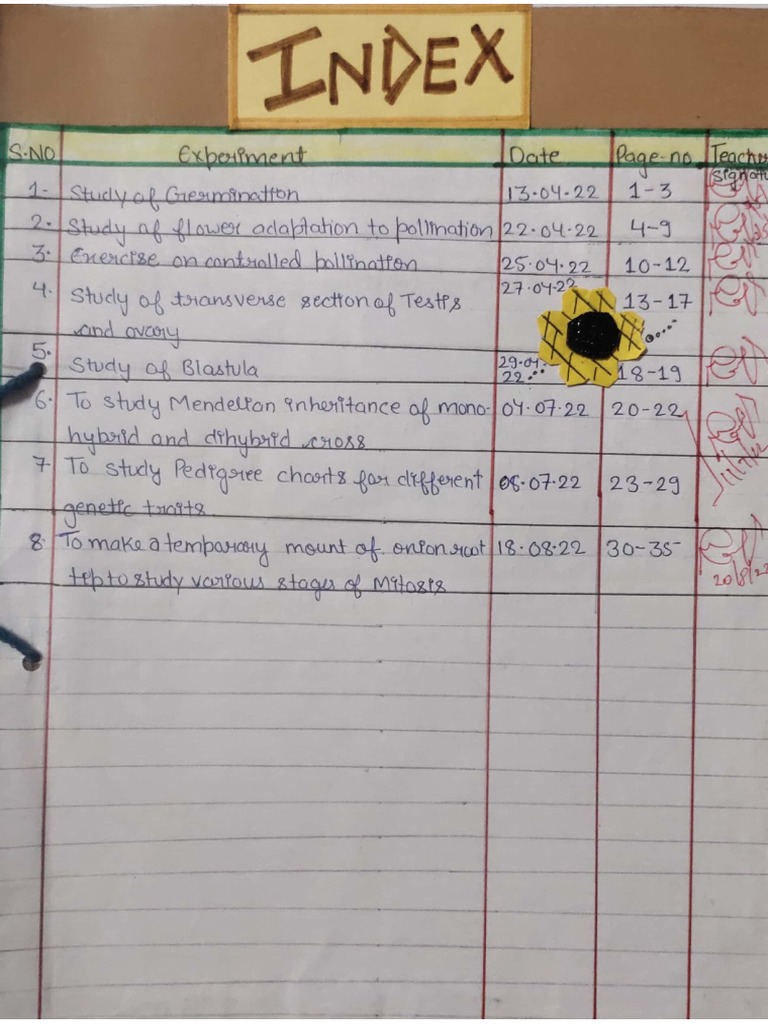 INDEX
S.NO Experiment Date Page-no Teacher
signatu
1. Study of Germination 13.04.22 1-3
2. Study of flower adaptation to pollination 22.04.22 4-9
3. Exercise on controlled pollination 25.04.22 10-12
4. Study of transverse section of Testis 27.04.22 13-17
and ovary
5. Study of Blastula 29.04. 18-19
22
6. To study Mendelian inheritance of mono- 04.07.22 20-22
hybrid and dihybrid cross
7 To study Pedigree charts for different 08.07.22 23-29
genetic traits
8. To make a temparary mount of onion root 18.08.22 30-35
tip to study various stages of Mitosis
20/8/22